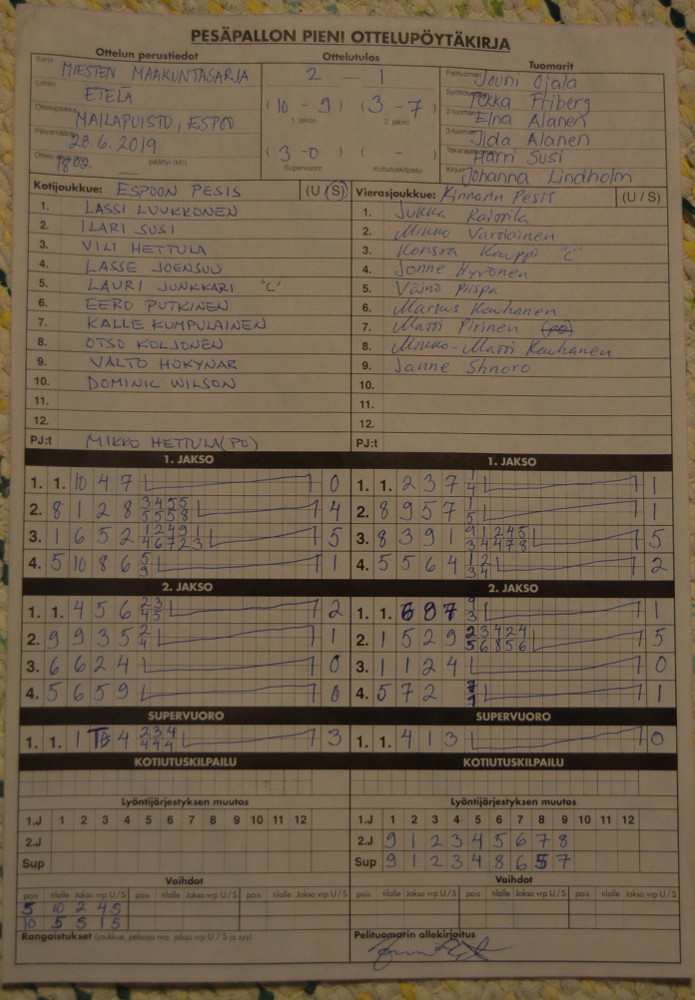 PESÄPALLON PIENI OTTELUPÖYTÄKIRJA
Ottelun perustiedot Ottelutulos Tuomarit
Sarja MIESTEN MAAKUNTASARJA
Lohko ETELÄ
Ottelupaikka MAILAPUISTO, ESPOO
Päivämäärä 28.6.2019
1802 päättyi (klo)
2 — 1
(10 - 9) (3 - 7)
1. jakso 2. jakso
(3 - 0) ( - )
Supervuoro Kotiutuskilpailu
Pelituomari Jouni Ojala
Pekka Friberg
2-tuomari Elna Alanen
3-tuomari Iida Alanen
Takarajatuomari Harri Susi
Johanna Lindholm
Kotijoukkue: ESPOON PESIS (U / S)
1. LASSI LUUKKONEN
2. ILARI SUSI
3. VILI HETTULA
4. LASSE JOENSUU
5. LAURI JUNKKARI "C"
6. EERO PUTKINEN
7. KALLE KUMPULAINEN
8. OTSO KOLJONEN
9. VALTO HÖKYNAR
10. DOMINIC WILSON
11.
12.
PJ:t MIKKO HETTULA (PO)
Vierasjoukkue: Kinnarin Pesis (U / S)
1. Jukka
2. Mikko Vartiainen
3. Kauppi "C"
4. Jonne Hyvönen
5. Väinö Piispa
6. Markus Kauhanen
7. Matti Pirinen
8. Mikko-Matti Kauhanen
9. Janne
10.
11.
12.
PJ:t
1. JAKSO
1. 1. 10 4 7 0
2. 8 1 2 8 3 4 5 5 4
5 5 5 8
3. 1 6 5 2 1 2 4 9 1 5
4 6 7 2 3
4. 5 10 8 6 5 1
9
1. JAKSO
1. 1. 2 3 7 1 1
4
2. 8 9 5 7 1 1
5
3. 8 3 9 1 9 1 2 4 5 5
3 4 4 7 8
4. 5 5 6 4 1 2 2
3 4
2. JAKSO
1. 1. 4 5 6 2 3 2
4 5
2. 9 9 3 5 2 1
4
3. 6 6 2 4 0
4. 5 6 5 9 0
2. JAKSO
1. 1. 6 8 7 9 1
3
2. 1 5 2 9 2 3 4 2 4 5
5 6 8 5 6
3. 1 1 2 4 0
4. 5 7 2 1
SUPERVUORO
1. 1. 1 4 2 3 4 3
4 4 4
SUPERVUORO
1. 1. 4 1 3 0
KOTIUTUSKILPAILU
Lyöntijärjestyksen muutos
1.J 1 2 3 4 5 6 7 8 9 10 11 12
2.J
Sup
KOTIUTUSKILPAILU
Lyöntijärjestyksen muutos
1.J 1 2 3 4 5 6 7 8 9 10 11 12
2.J 9 1 2 3 4 5 6 7 8
Sup 9 1 2 3 4 8 6 5 7
Vaihdot
pois tilalle Jakso vrp U / S pois tilalle Jakso vrp U / S pois tilalle Jakso vrp U / S
5 10 2 4 S
10 5 S 1 S
Rangaistukset (joukkue, pelaaja nro, jakso vrp U / S ja syy)
Vaihdot
pois tilalle Jakso vrp U / S pois tilalle Jakso vrp U / S pois tilalle Jakso vrp U / S
Pelituomarin allekirjoitus